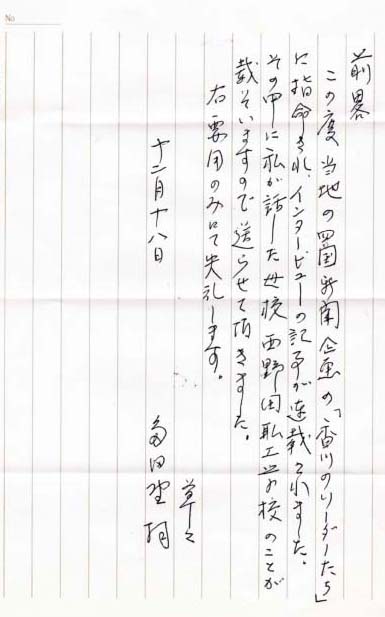 No
前畧
この度当地の四国新聞企画の「香川のリーダーたち」
に指命され、インタービューの記事が連載されました。
その中に私が話した母校西野田職工学校のことが
載っていますので送らせて頂きました。
右要用のみにて失礼します。
十二月十八日
草々